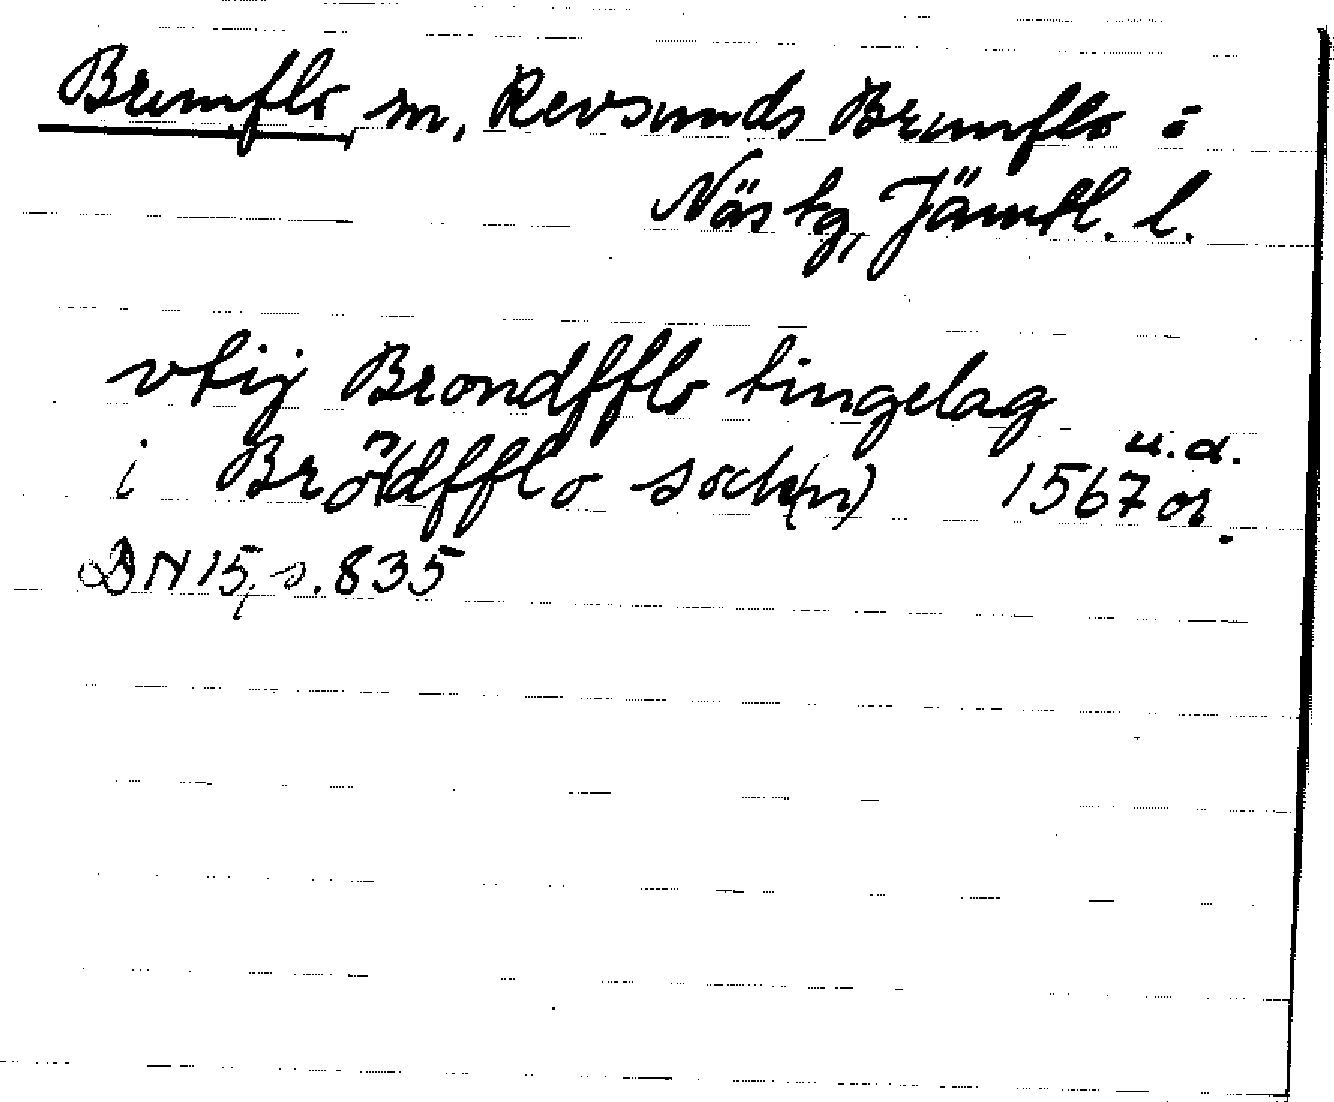 Brunflo sn, Revsunds Brunflo ö
Näs tg, Jämtl. l.
vtij Brondfflo tingelag
u.d.
i Brödfflo sock(n) 1567 or.
DN 15, s. 835